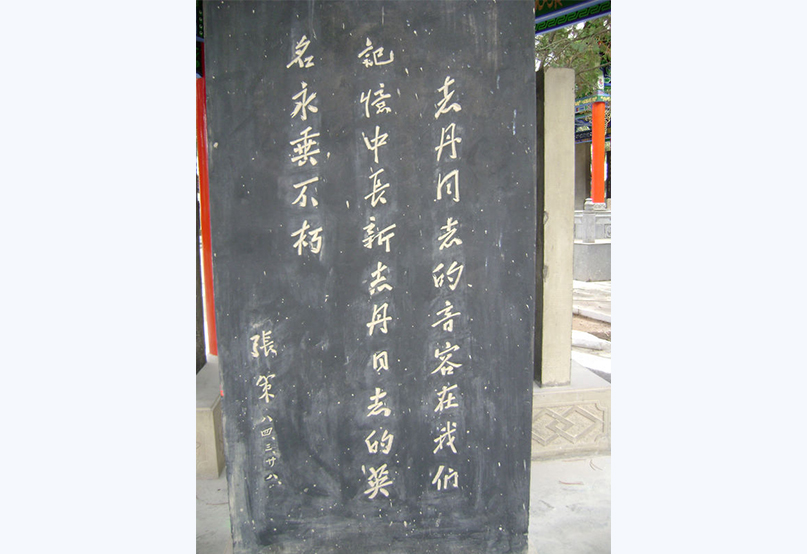 志丹同志的音容在我们
記憶中长新志丹同志的英
名永垂不朽
張策八四、三、廿八